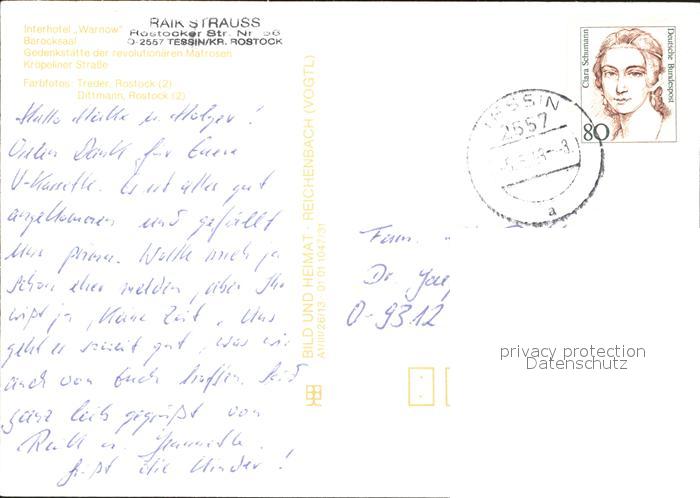 Interhotel „Warnow"
Barocksaal
Gedenkstätte der revolutionären Matrosen
Kröpeliner Straße
Farbfotos: Treder, Rostock (2)
Dittmann, Rostock (2)
RAIK STRAUSS
Rostocker Str. Nr 56
O-2557 TESSIN/KR. ROSTOCK
Clara Schumann
Deutsche Bundespost
80
TESSIN
2557
a
Hallo u. Holger!
Vielen Dank für Eure
V-Kassette. Es ist alles gut
angekommen und gefällt
uns prima. Wollte mich ja
schon eher melden, aber Ihr
wißt ja, keine Zeit. Uns
geht es soweit gut, was wir
auch von Euch hoffen. Seid
ganz lieb gegrüßt von
u.
Grüßt die Kinder!
BILD UND HEIMAT · REICHENBACH (VOGTL)
A1/III/26/13 01 01 1047/31
Fam.
Dr.
O-9312
privacy protection
Datenschutz